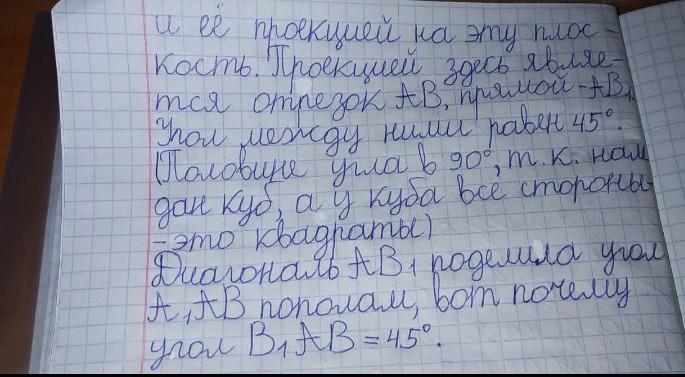 и её проекцией на эту плос-
кость. Проекцией здесь являе-
тся отрезок AB, прямой - AB₁.
Угол между ними равен 45°.
(Половине угла в 90°, т.к. нам
дан куб, а у куба все стороны-
-это квадраты)
Диагональ AB₁ поделила угол
A₁AB пополам, вот почему
угол B₁AB = 45°.